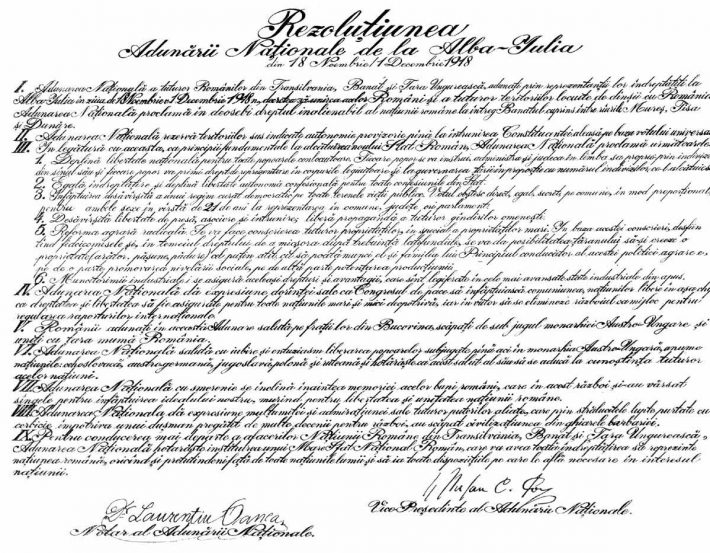 Rezoluțiunea
Adunării Naționale de la Alba-Iulia
din 18 Noembrie/1 Decembrie 1918
I. Adunarea Națională a tuturor Românilor din Transilvania, Banat și Țara Ungurească, adunați prin reprezentanții lor îndreptățiți la
Alba Iulia în ziua de 18 Noembrie/1 Decembrie 1918, decretează unirea acelor Români și a tuturor teritoriilor locuite de dânșii cu România.
Adunarea Națională proclamă în deosebi dreptul inalienabil al națiunii române la întreg Banatul cuprins între râurile Mureș, Tisa
și Dunăre.
II. Adunarea Națională rezervă teritoriilor sus indicate autonomie provizorie până la întrunirea Constituantei aleasă pe baza votului universal
III. În legătură cu aceasta, ca principii fundamentale la alcătuirea noului Stat Român, Adunarea Națională proclamă următoarele:
1. Deplină libertate națională pentru toate popoarele conlocuitoare. Fiecare popor se va instrui, administra și judeca în limba sa proprie prin indivizi
din sânul său și fiecare popor va primi drept de reprezentare în corpurile legiuitoare și la guvernarea țării în proporție cu numărul indivizilor ce-l alcătuiesc
2. Egală îndreptățire și deplină libertate autonomă confesională pentru toate confesiunile din Stat.
3. Înfăptuirea desăvârșită a unui regim curat democratic pe toate terenele vieții publice. Votul obștesc, direct, egal, secret, pe comune, în mod proporțional,
pentru ambele sexe în vârstă de 21 de ani la reprezentarea în comune, județe ori parlament.
4. Desăvârșită libertate de presă, asociere și întrunire; liberă propagandă a tuturor gândirilor omenești.
5. Reforma agrară radicală. Se va face conscrierea tuturor proprietăților, în special a proprietăților mari. În baza acestei conscrieri, desființ
ând fideicomisele și, în temeiul dreptului de a micșora după trebuință latifundiile, se va da posibilitatea țăranului să-și creeze o
proprietate (arător, pășune, pădure) cel puțin atât cât să poată munci el și familia lui. Principiul conducător al acestei politici agrare e
pe de o parte promovarea nivelării sociale, pe de altă parte potențarea producțiunii.
6. Muncitorimei industriale i se asigură aceleași drepturi și avantagii, care sînt legiferate în cele mai avansate state industriale din apus.
IV. Adunarea Națională dă expresiune dorinței sale ca Congresul de pace să înfăptuiască comuniunea națiunilor libere în așa chip
ca dreptatea și libertatea să fie asigurate pentru toate națiunile mari și mici deopotrivă, iar în viitor să se elimineze războiul ca mijloc pentru
regularea raporturilor internaționale.
V. Românii adunați în această Adunare salută pe frații lor din Bucovina, scăpați de sub jugul monarhiei Austro-Ungare și
uniți cu țara mumă România.
VI. Adunarea Națională salută cu iubire și entuziasm liberarea popoarelor subjugate până aci în monarhia Austro-Ungară, anume
națiunile: cehoslovacă, austrogermană, jugoslavă, polonă și ruteană și hotărăște ca acest salut al său să se aducă la cunoștința tuturor
acelor națiuni.
VII. Adunarea Națională cu smerenie se închină înaintea memoriei acelor bravi români, care în acest război și-au vărsat
sângele pentru înfăptuirea idealului nostru, murind pentru libertatea și unitatea națiunii române.
VIII. Adunarea Națională dă expresiune mulțumitei și admirațiunei sale tuturor puterilor aliate, care prin strălucitele lupte purtate cu
cerbicie împotriva unui dușman pregătit de multe decenii pentru război, au scăpat civilizațiunea din ghiarele barbariei.
IX. Pentru conducerea mai departe a afacerilor Națiunii Române din Transilvania, Banat și Țara Ungurească,
Adunarea Națională hotărăște instituirea unui Mare Sfat Național Român, care va avea toată îndreptățirea să reprezinte
națiunea română, oricând și pretutindeni față de toate națiunile lumii și să ia toate dispozițiile pe care le află necesare în interesul
națiunii.
Dr. Laurențiu Oanea
Notar al Adunării Naționale.
Vice Președinte al Adunării Naționale.